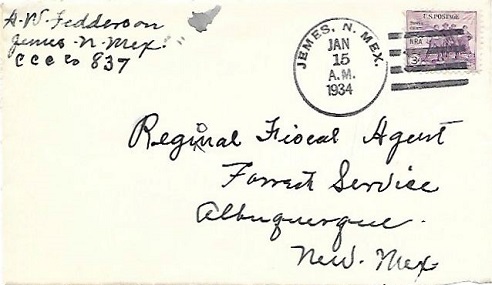 A. W. Fedderson
Jemes - N - Mex.
C C C Co 837
JEMES, N. MEX.
JAN
15
A.M.
1934
U.S. POSTAGE
NRA
3¢
Reginal Fiscal Agent
Forrest Service
Albuquerque.
New. Mex.